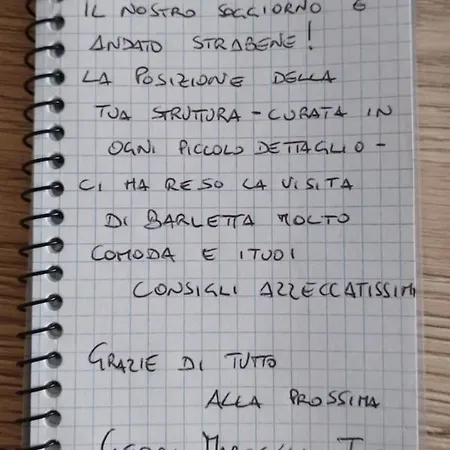 IL NOSTRO SOGGIORNO È
ANDATO STRABENE!
LA POSIZIONE DELLA
TUA STRUTTURA - CURATA IN
OGNI PICCOLO DETTAGLIO -
CI HA RESO LA VISITA
DI BARLETTA MOLTO
COMODA E I TUOI
CONSIGLI AZZECCATISSIMI
GRAZIE DI TUTTO
ALLA PROSSIMA